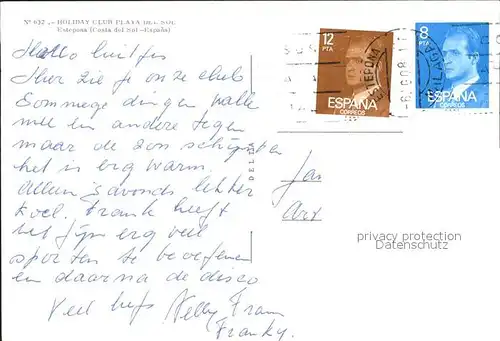 Nº 632 .- HOLIDAY CLUB PLAYA DEL SOL
Estepona (Costa del Sol -España)
Hallo luitjes
Hier zie je onze club
Sommege dingen valle
mee en andere tegen
maar de zon schijnt en
het is erg warm.
Alleen s'avonds lekker
koel. Frank heeft
het fijn erg veel
sporten te beoefenen
en daarna de disco
Veel liefs Nelly Frans
Franky.
12
PTA
ESPAÑA
CORREOS
8
PTA
ESPAÑA
CORREOS
ESTEPONA
MALAGA
Jan
privacy protection
Datenschutz